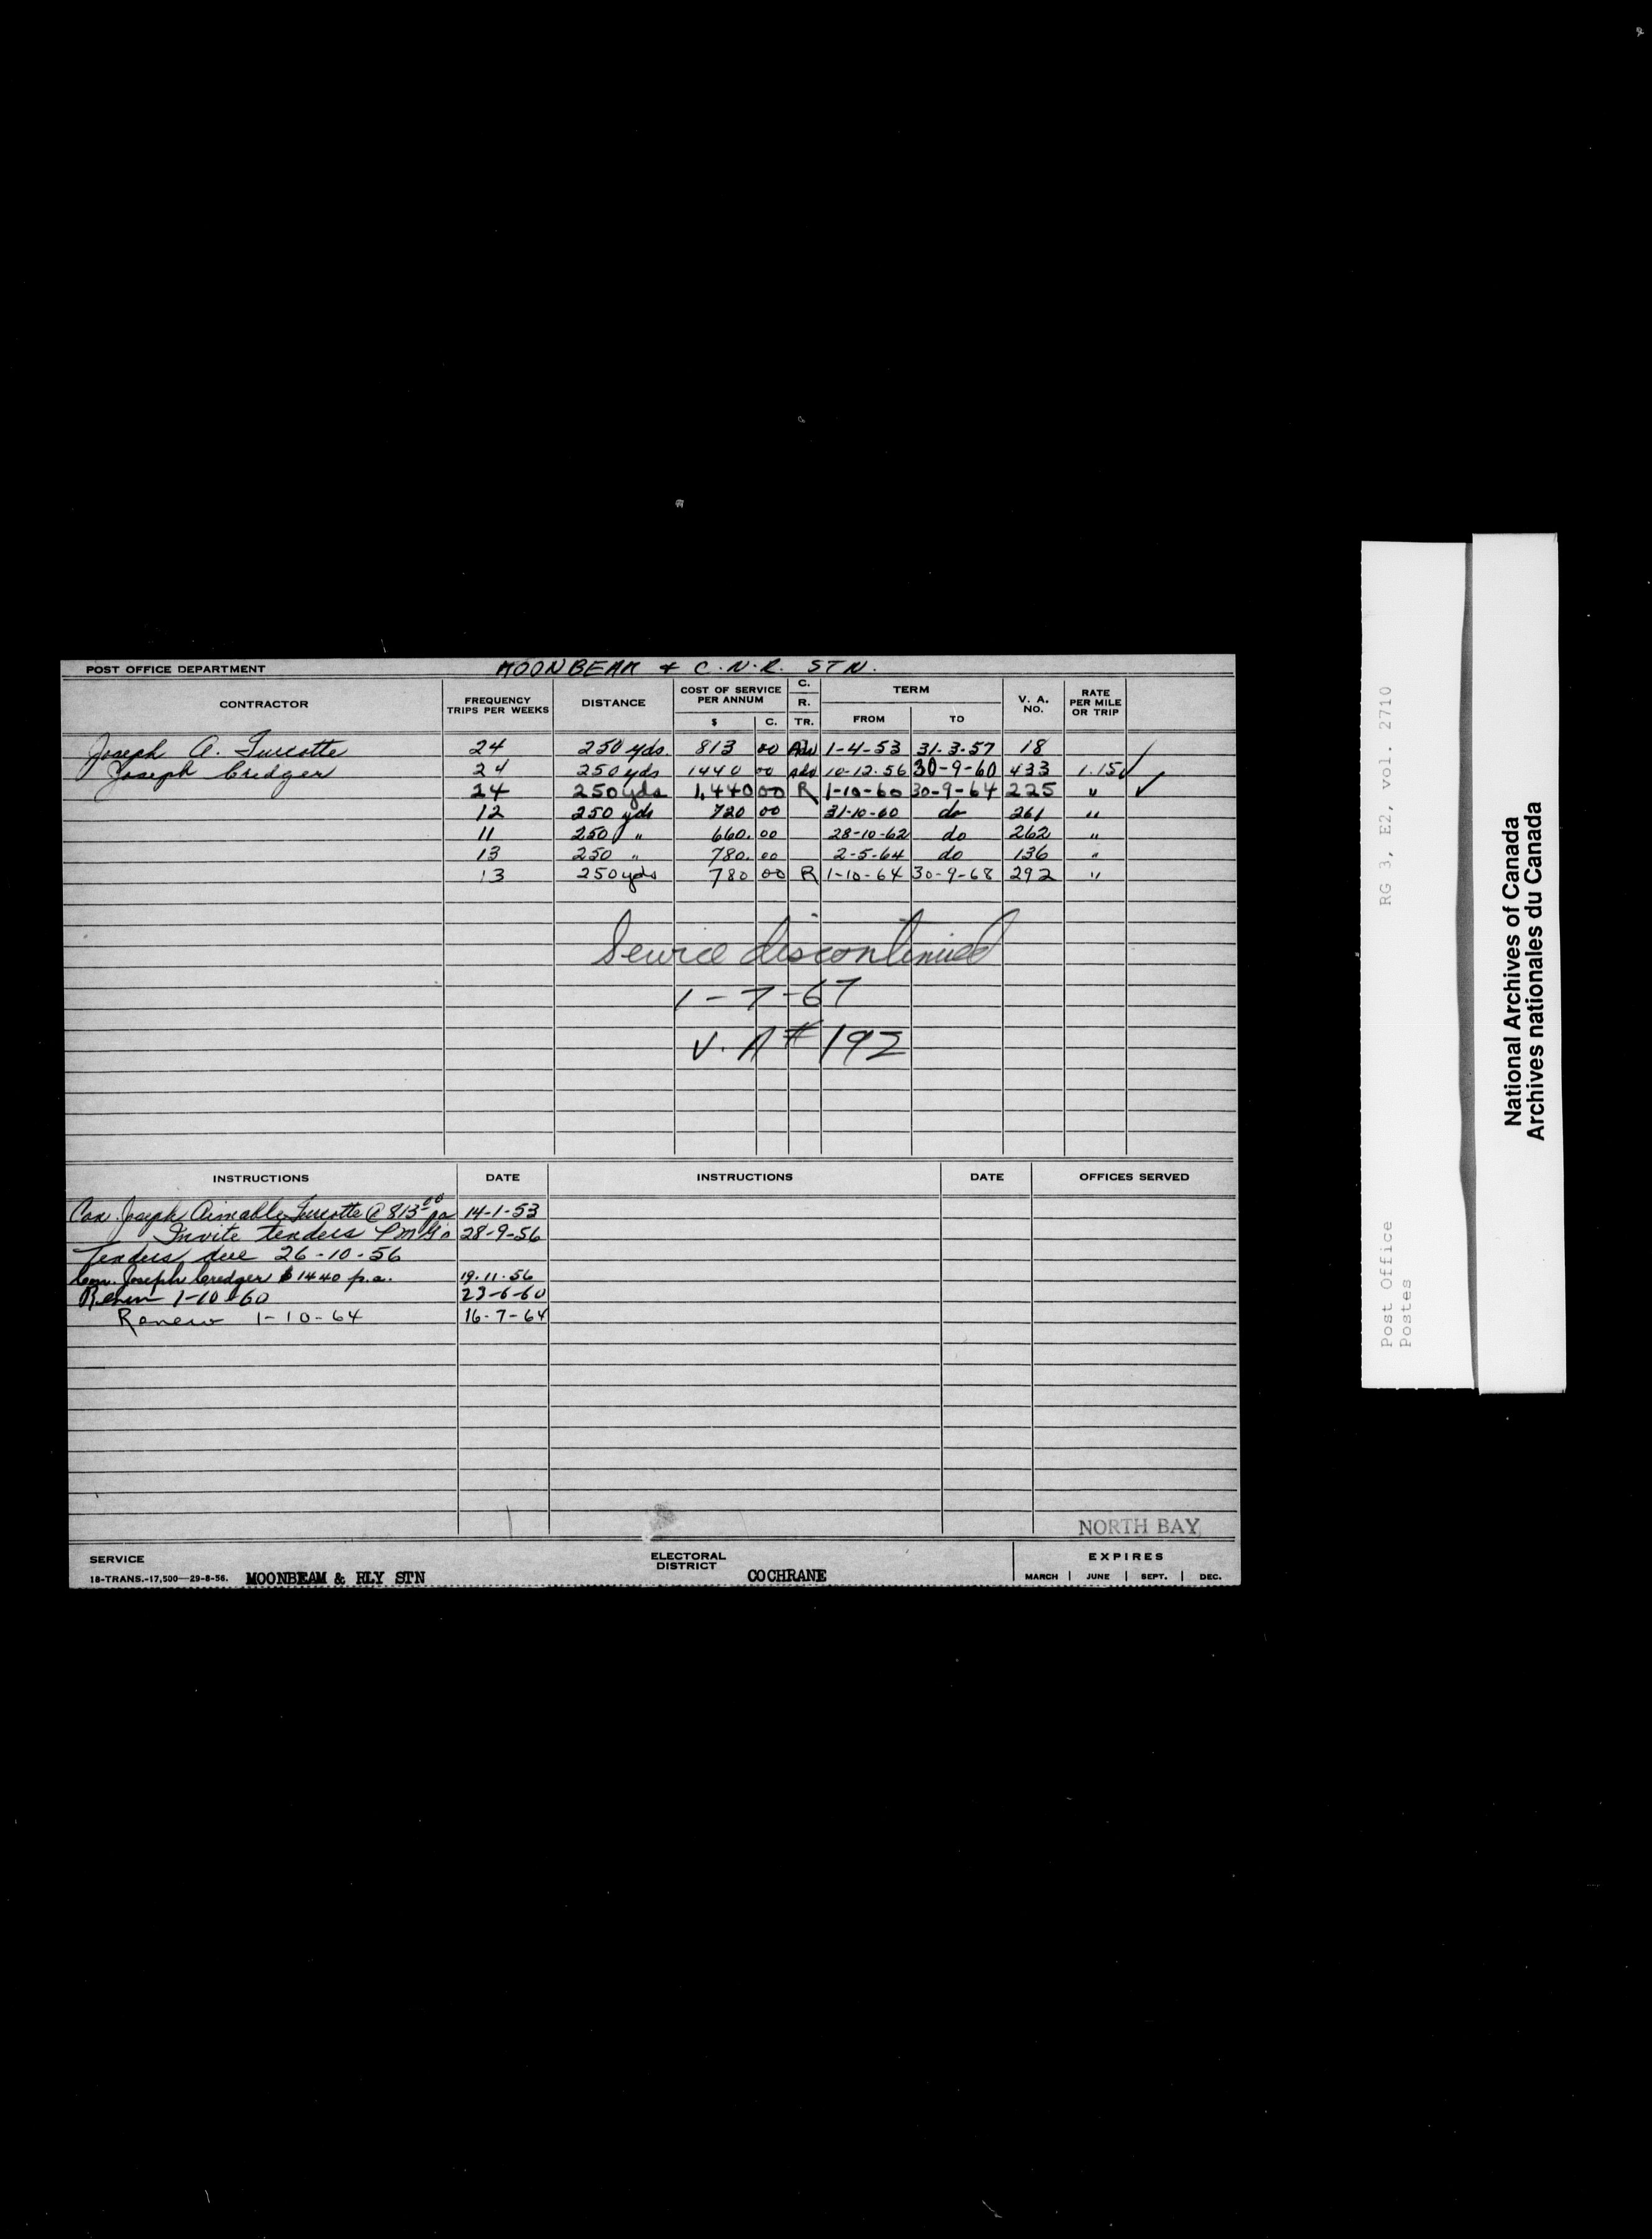 POST OFFICE DEPARTMENT MOONBEAM & C.N.R. STN.
CONTRACTOR FREQUENCY TRIPS PER WEEKS DISTANCE COST OF SERVICE PER ANNUM $ C. C. R. TR. TERM FROM TO V. A. NO. RATE PER MILE OR TRIP
Joseph A. Turcotte 24 250 yds. 813 00 Adv 1-4-53 31-3-57 18
Joseph Credger 24 250 yds 1440 00 Adv 10-12-56 30-9-60 433 1.15 ✓
24 250 yds 1,440 00 R 1-10-60 30-9-64 225 " ✓
12 250 yds 720 00 31-10-60 do 261 "
11 250 " 660.00 28-10-62 do 262 "
13 250 " 780.00 2-5-64 do 136 "
13 250 yds 780 00 R 1-10-64 30-9-68 292 "
Service discontinued
1-7-67
V. A # 192
INSTRUCTIONS DATE INSTRUCTIONS DATE OFFICES SERVED
Con. Joseph Aimable Turcotte @ 813 00 pa 14-1-53
Invite tenders 28-9-56
Tenders due 26-10-56
Con. Joseph Credger $1440 p.a. 19.11.56
Renew 1-10-60 23-6-60
Renew 1-10-64 16-7-64
NORTH BAY
SERVICE ELECTORAL DISTRICT EXPIRES
18-TRANS.-17,500—29-8-56. MOONBEAM & RLY STN COCHRANE MARCH JUNE SEPT. DEC.
Post Office RG 3, E2, vol. 2710
Postes
National Archives of Canada
Archives nationales du Canada